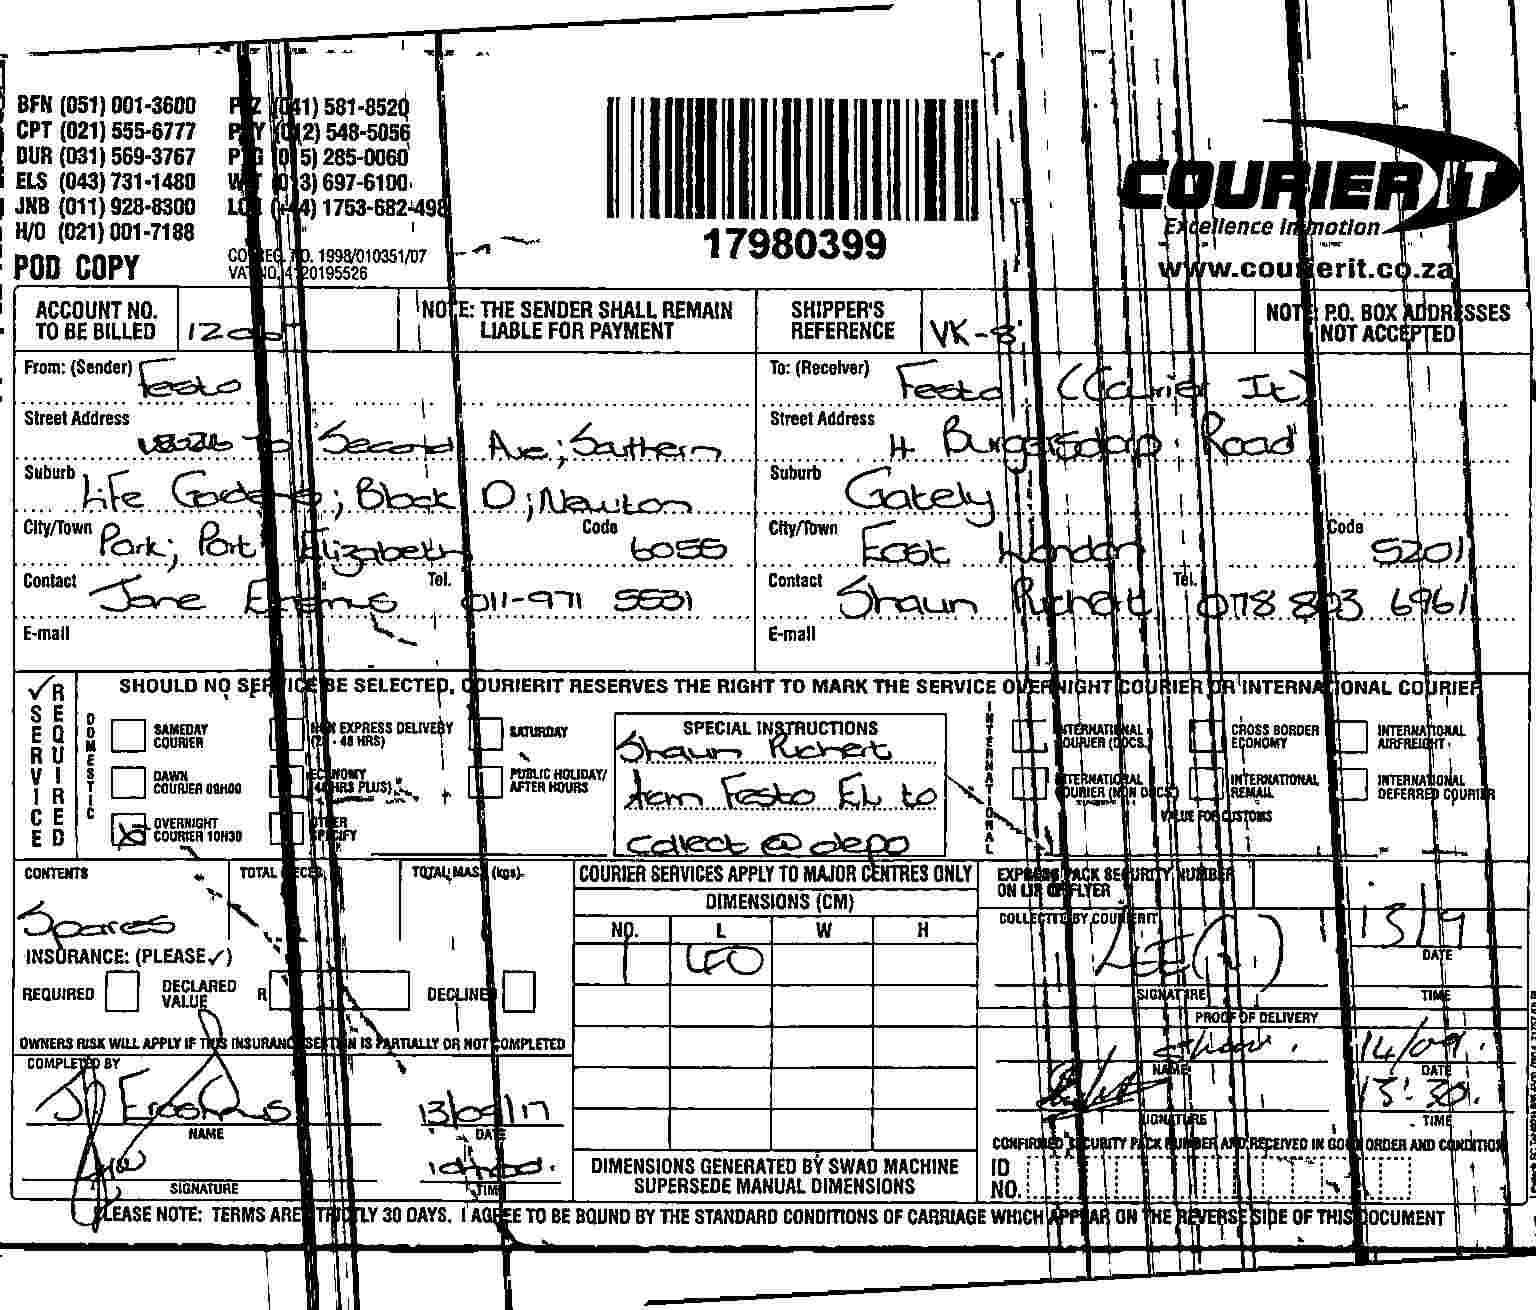 BFN (051) 001-3600
CPT (021) 555-6777
DUR (031) 569-3767
ELS (043) 731-1480
JNB (011) 928-8300
H/O (021) 001-7188
PLZ (041) 581-8520
PRY (012) 548-5056
PTG (015) 285-0060
(013) 697-6100
(+44) 1753-682-498
POD COPY
CO. REG. NO. 1998/010351/07
VAT NO. 4120195526
17980399
COURIER IT
Excellence in motion
www.courierit.co.za
ACCOUNT NO. TO BE BILLED
NOTE: THE SENDER SHALL REMAIN LIABLE FOR PAYMENT
SHIPPER'S REFERENCE VK-8
NOTE: P.O. BOX ADDRESSES NOT ACCEPTED
From: (Sender) Festo
Street Address To Second Ave; Southern
Suburb Life Gardens; Block D; Newton
City/Town Park; Port Elizabeth Code 6055
Contact Jane Erasmus Tel. 011-971 5531
E-mail
To: (Receiver) Festo (Courier It)
Street Address 4 Burgersdorp Road
Suburb Gately
City/Town East London Code 5201
Contact Shaun Richert Tel. 078 803 6961
E-mail
SERVICE REQUIRED
SHOULD NO SERVICE BE SELECTED, COURIERIT RESERVES THE RIGHT TO MARK THE SERVICE OVERNIGHT COURIER OR INTERNATIONAL COURIER
DOMESTIC
SAMEDAY COURIER
NON EXPRESS DELIVERY (24 - 48 HRS)
SATURDAY
DAWN COURIER 09H00
ECONOMY (48 HRS PLUS)
PUBLIC HOLIDAY/ AFTER HOURS
OVERNIGHT COURIER 10H30
OTHER SPECIFY
SPECIAL INSTRUCTIONS
Shaun Richert
from Festo EL to
collect @ depo
INTERNATIONAL
INTERNATIONAL COURIER (DOCS)
CROSS BORDER ECONOMY
INTERNATIONAL AIRFREIGHT
INTERNATIONAL COURIER (NON DOCS)
INTERNATIONAL REMAIL
INTERNATIONAL DEFERRED COURIER
VALUE FOR CUSTOMS
CONTENTS
Spares
TOTAL PIECES
TOTAL MASS (kgs)
INSURANCE: (PLEASE ✓)
REQUIRED
DECLARED VALUE R
DECLINED
OWNERS RISK WILL APPLY IF THIS INSURANCE SECTION IS PARTIALLY OR NOT COMPLETED
COMPLETED BY
J Erasmus 13/09/17
NAME DATE
SIGNATURE TIME
COURIER SERVICES APPLY TO MAJOR CENTRES ONLY
DIMENSIONS (CM)
NO. L W H
1 LFO
DIMENSIONS GENERATED BY SWAD MACHINE SUPERSEDE MANUAL DIMENSIONS
EXPRESS PACK SECURITY NUMBER ON LIP OF FLYER
COLLECTED BY COURIERIT
LEE 13/9
SIGNATURE DATE
TIME
PROOF OF DELIVERY
Shaun. 14/09.
NAME DATE
13:30.
SIGNATURE TIME
CONFIRMED SECURITY PACK NUMBER AND RECEIVED IN GOOD ORDER AND CONDITION
ID NO.
PLEASE NOTE: TERMS ARE STRICTLY 30 DAYS. I AGREE TO BE BOUND BY THE STANDARD CONDITIONS OF CARRIAGE WHICH APPEAR ON THE REVERSE SIDE OF THIS DOCUMENT